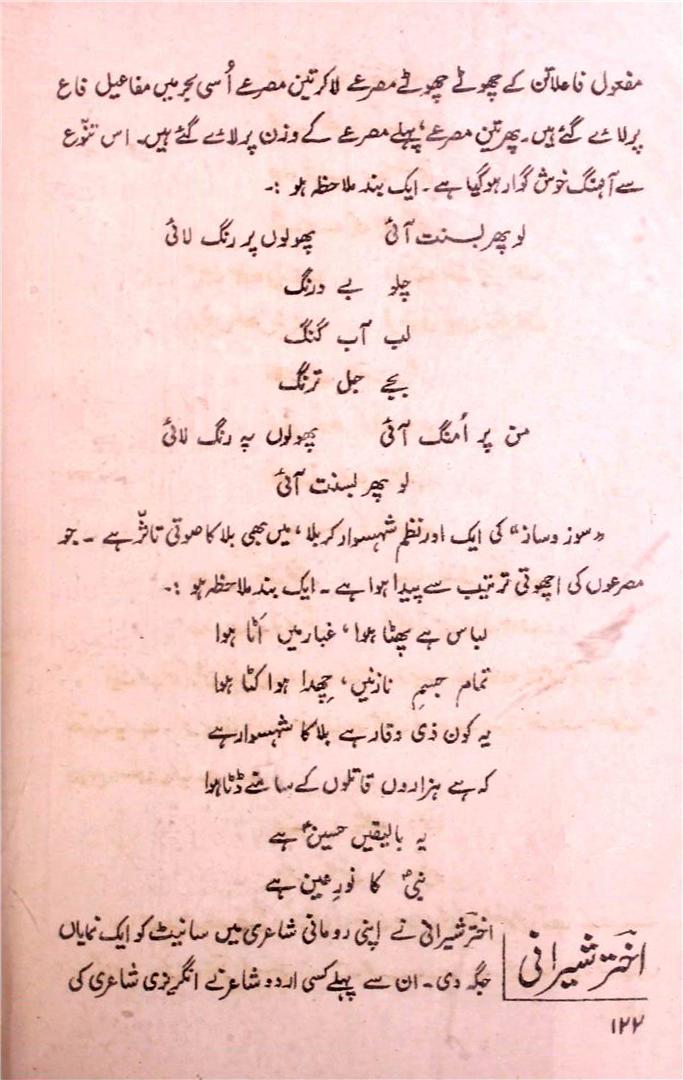 مفعول فاعلاتن کے چھوٹے چھوٹے مصرعے لاکر تین مصرعے اُسی بحر میں مفاعیل فاع
پر لائے گئے ہیں۔ پھر تین مصرعے، پہلے مصرعے کے وزن پر لائے گئے ہیں۔ اس تنوّع
سے آہنگ خوش گوار ہو گیا ہے۔ ایک بند ملاحظہ ہو :۔
لو پھر بسنت آئی پھولوں پر رنگ لائی
چلو بے درنگ
لب آب گنگ
بجے جل ترنگ
من پر اُمنگ آئی پھولوں پہ رنگ لائی
لو پھر بسنت آئی
"سوز و ساز" کی ایک اور نظم شہسوار کربلا، میں بھی بلا کا صوتی تاثّر ہے ۔ جو
مصرعوں کی اچھوتی ترتیب سے پیدا ہوا ہے ۔ ایک بند ملاحظہ ہو :۔
لباس ہے پھٹا ہوا، غبار میں اَٹا ہوا
تمام جسمِ نازنیں، چھِدا ہوا کٹا ہوا
یہ کون ذی وقار ہے بلا کا شہسوار ہے
کہ ہے ہزاروں قاتلوں کے سامنے ڈٹا ہوا
یہ بالیقیں حسینؑ ہے
نبیؐ کا نورِ عین ہے
اخترؔ شیرانی
اخترؔ شیرانی نے اپنی رومانی شاعری میں سانیٹ کو ایک نمایاں
جگہ دی۔ ان سے پہلے کسی اردو شاعر نے انگریزی شاعری کی
۱۲۲